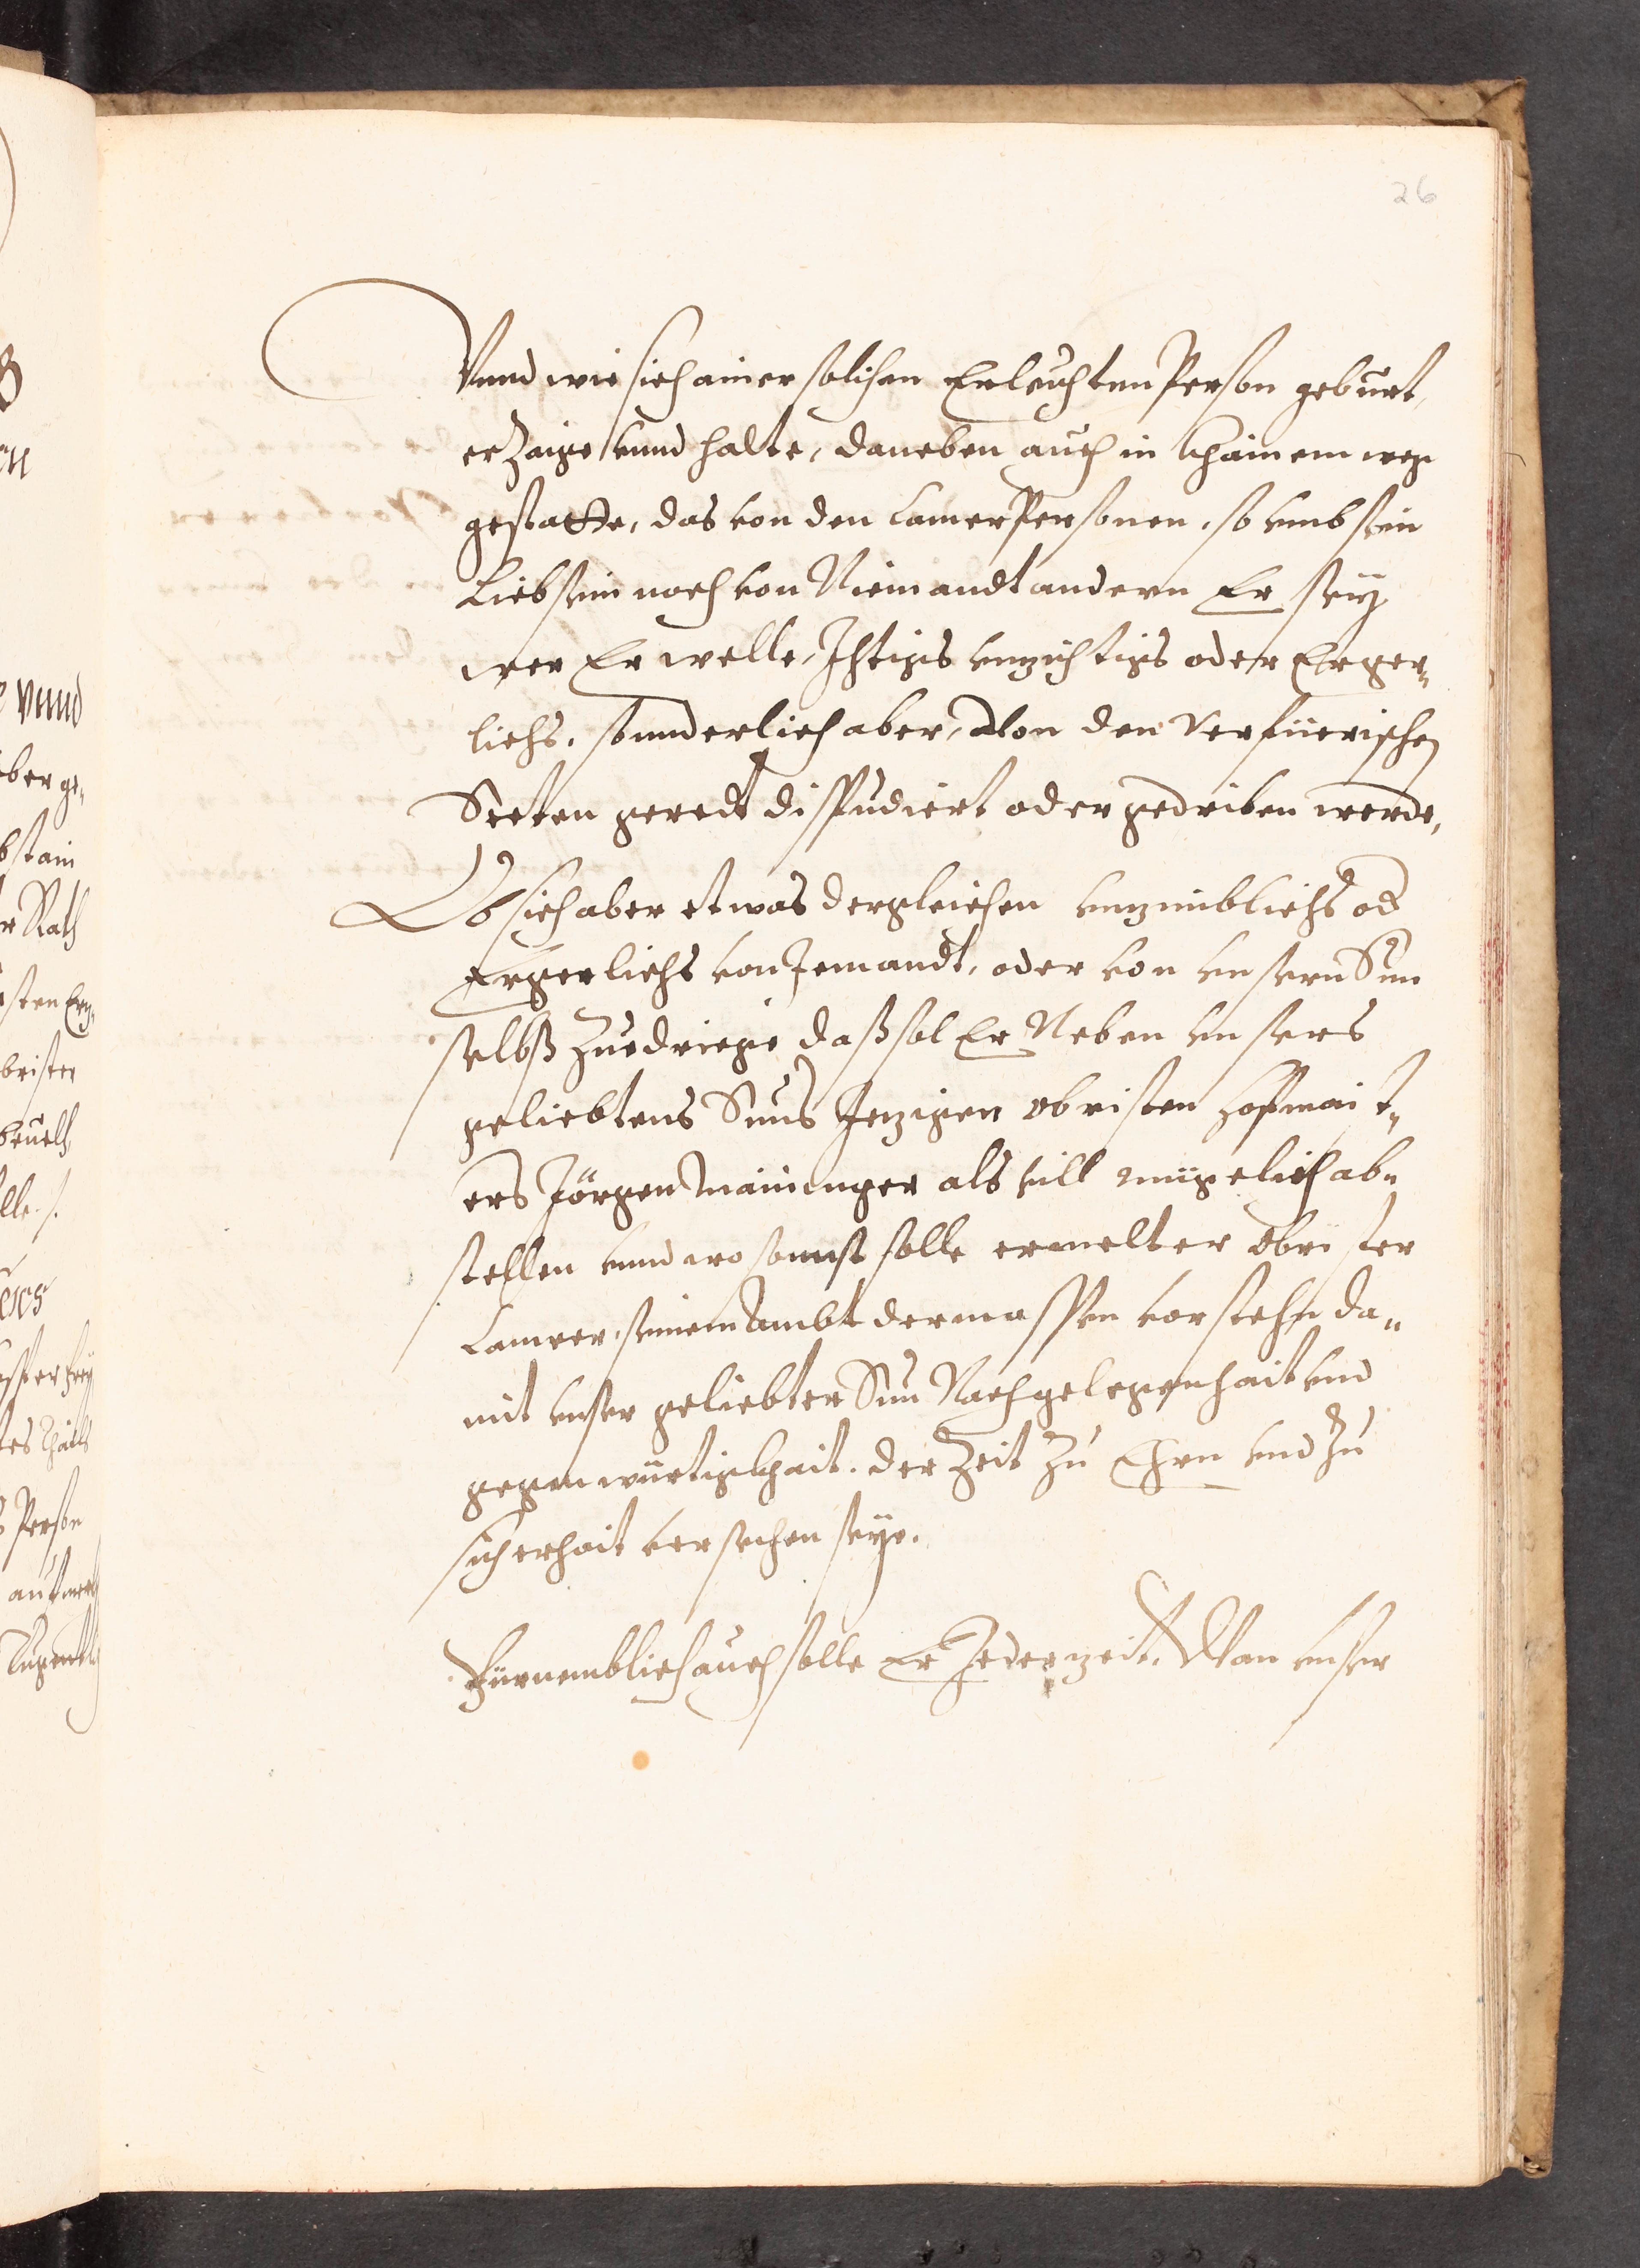 26
Vnnd wie sich ainer solichen Erleuchten Person geburt,
erzaige vnnd halte, daneben auch in khainem weg
gestatte, das von den CamerPersonen, so vmb sein
Lieb sein noch von Niemandt andern Er sey
wer Er welle, Ichtigs vnzichtigs oder Erger„
lichs, sonnderlich aber, Von den Verfüerischen
Secten geredt disputiert oder gedriben werde,
Ob sich aber etwas dergleichen vnzimblichs od
Ergerlichs von Jemandt, oder von vnserm Sun
selbß zuedriege daß sol Er Neben vnsers
geliebtens Suns Jezigen obristen Hofmaist„
ers Jörgen Maininger als vill müglich ab„
stellen vnnd wo sonnst solle ermelter Obrister
Camrer, seinem Ambt dermassen vorstehn da„
mit vnser geliebter Sun Nach gelegenhait vnd
gegenwürtigkhait. der Zeit zu Ehrn vnd zu
sicherhait versechen seye.
Fürnemblich auch solle Er Jederzeit, Wan vnser
vnnd
aber ge„
Rath
obrister
Person